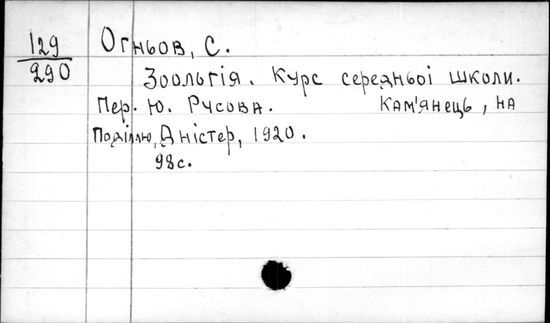 129
290
Огньов, С.
Зоольгія. Курс середньоі школи.
Пер. Ю. Русова. Кам'янець, на
Поділлю, Дністер, 1920.
98с.